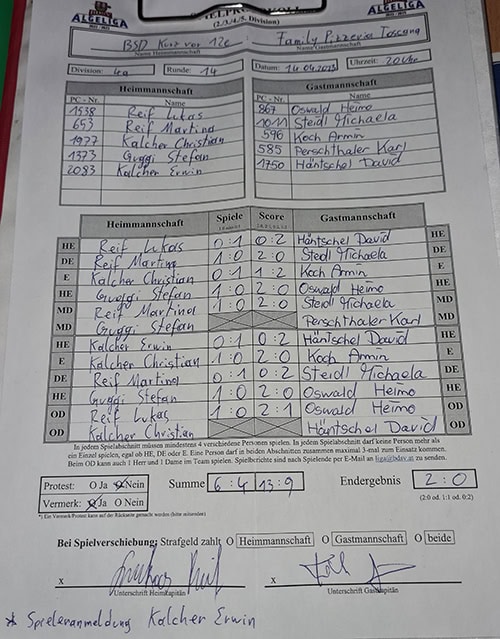 ALGELIGA SPIELPROTOKOLL ALGELIGA
(2./3./4./5. Division)
BSD Kurz vor 12e : Family Pizzeria Toscana
Name Heimmannschaft Name Gastmannschaft
Division: 4a Runde: 14 Datum: 14.04.2023 Uhrzeit: 20 Uhr
Heimmannschaft Gastmannschaft
PC - Nr. Name PC - Nr. Name
1538 Reif Lukas 867 Oswald Heimo
653 Reif Martina 1011 Steidl Michaela
1977 Kalcher Christian 596 Koch Armin
1373 Guggi Stefan 585 Perschthaler Karl
2083 Kalcher Erwin 1750 Häntschel David
Heimmannschaft Spiele Score Gastmannschaft
HE Reif Lukas 0:1 0:2 Häntschel David HE
DE Reif Martina 1:0 2:0 Steidl Michaela DE
E Kalcher Christian 0:1 1:2 Koch Armin E
HE Guggi Stefan 1:0 2:0 Oswald Heimo HE
MD Reif Martina 1:0 2:0 Steidl Michaela MD
MD Guggi Stefan Perschthaler Karl MD
HE Kalcher Erwin 0:1 0:2 Häntschel David HE
E Kalcher Christian 1:0 2:0 Koch Armin E
DE Reif Martina 0:1 0:2 Steidl Michaela DE
HE Guggi Stefan 1:0 2:0 Oswald Heimo HE
OD Reif Lukas 1:0 2:1 Oswald Heimo OD
OD Kalcher Christian Häntschel David OD
In jedem Spielabschnitt müssen mindestens 4 verschiedene Personen spielen. In jedem Spielabschnitt darf keine Person mehr als
ein Einzel spielen, egal ob HE, DE oder E. Eine Person darf in beiden Abschnitten zusammen maximal 3-mal zum Einsatz kommen.
Beim OD kann auch 1 Herr und 1 Dame im Team spielen. Spielberichte sind nach Spielende per E-Mail an liga@bdsv.at zu senden.
Protest: O Ja O Nein Summe 6:4 13:9 Endergebnis 2:0
Vermerk: O Ja O Nein (2:0 od. 1:1 od. 0:2)
*) Ein Vermerk/Protest kann auf der Rückseite gemacht werden (bitte mitsenden)
Bei Spielverschiebung: Strafgeld zahlt O Heimmannschaft O Gastmannschaft O beide
x x
Unterschrift Heimkapitän Unterschrift Gastkapitän
* Spieleranmeldung Kalcher Erwin